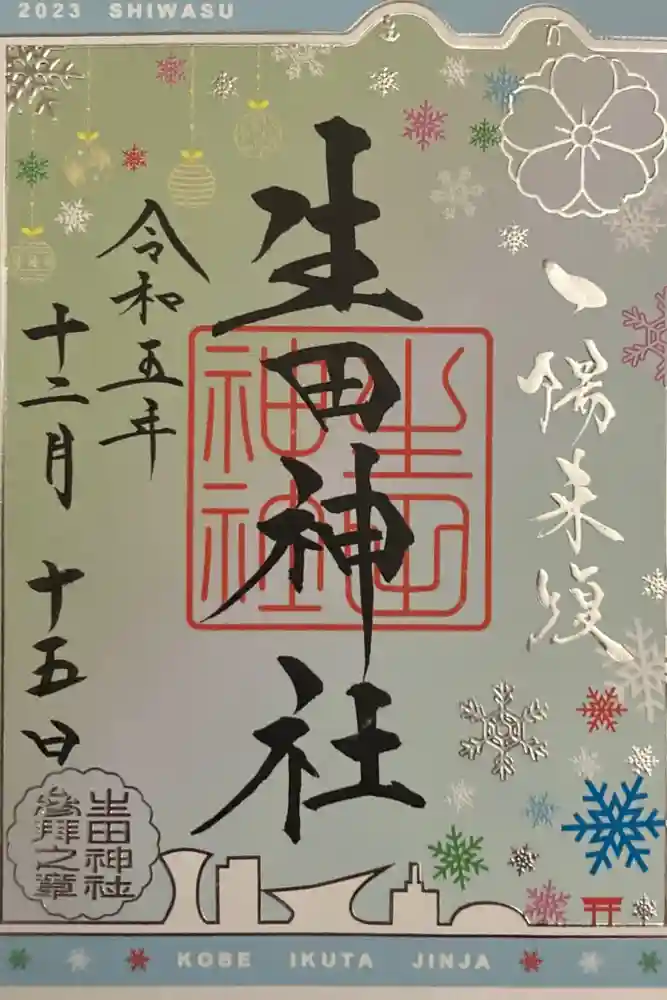 2023 SHIWASU
一陽来復
生田神社
生田神社
令和五年
十二月 十五日
生田神社
参拝之章
KOBE IKUTA JINJA